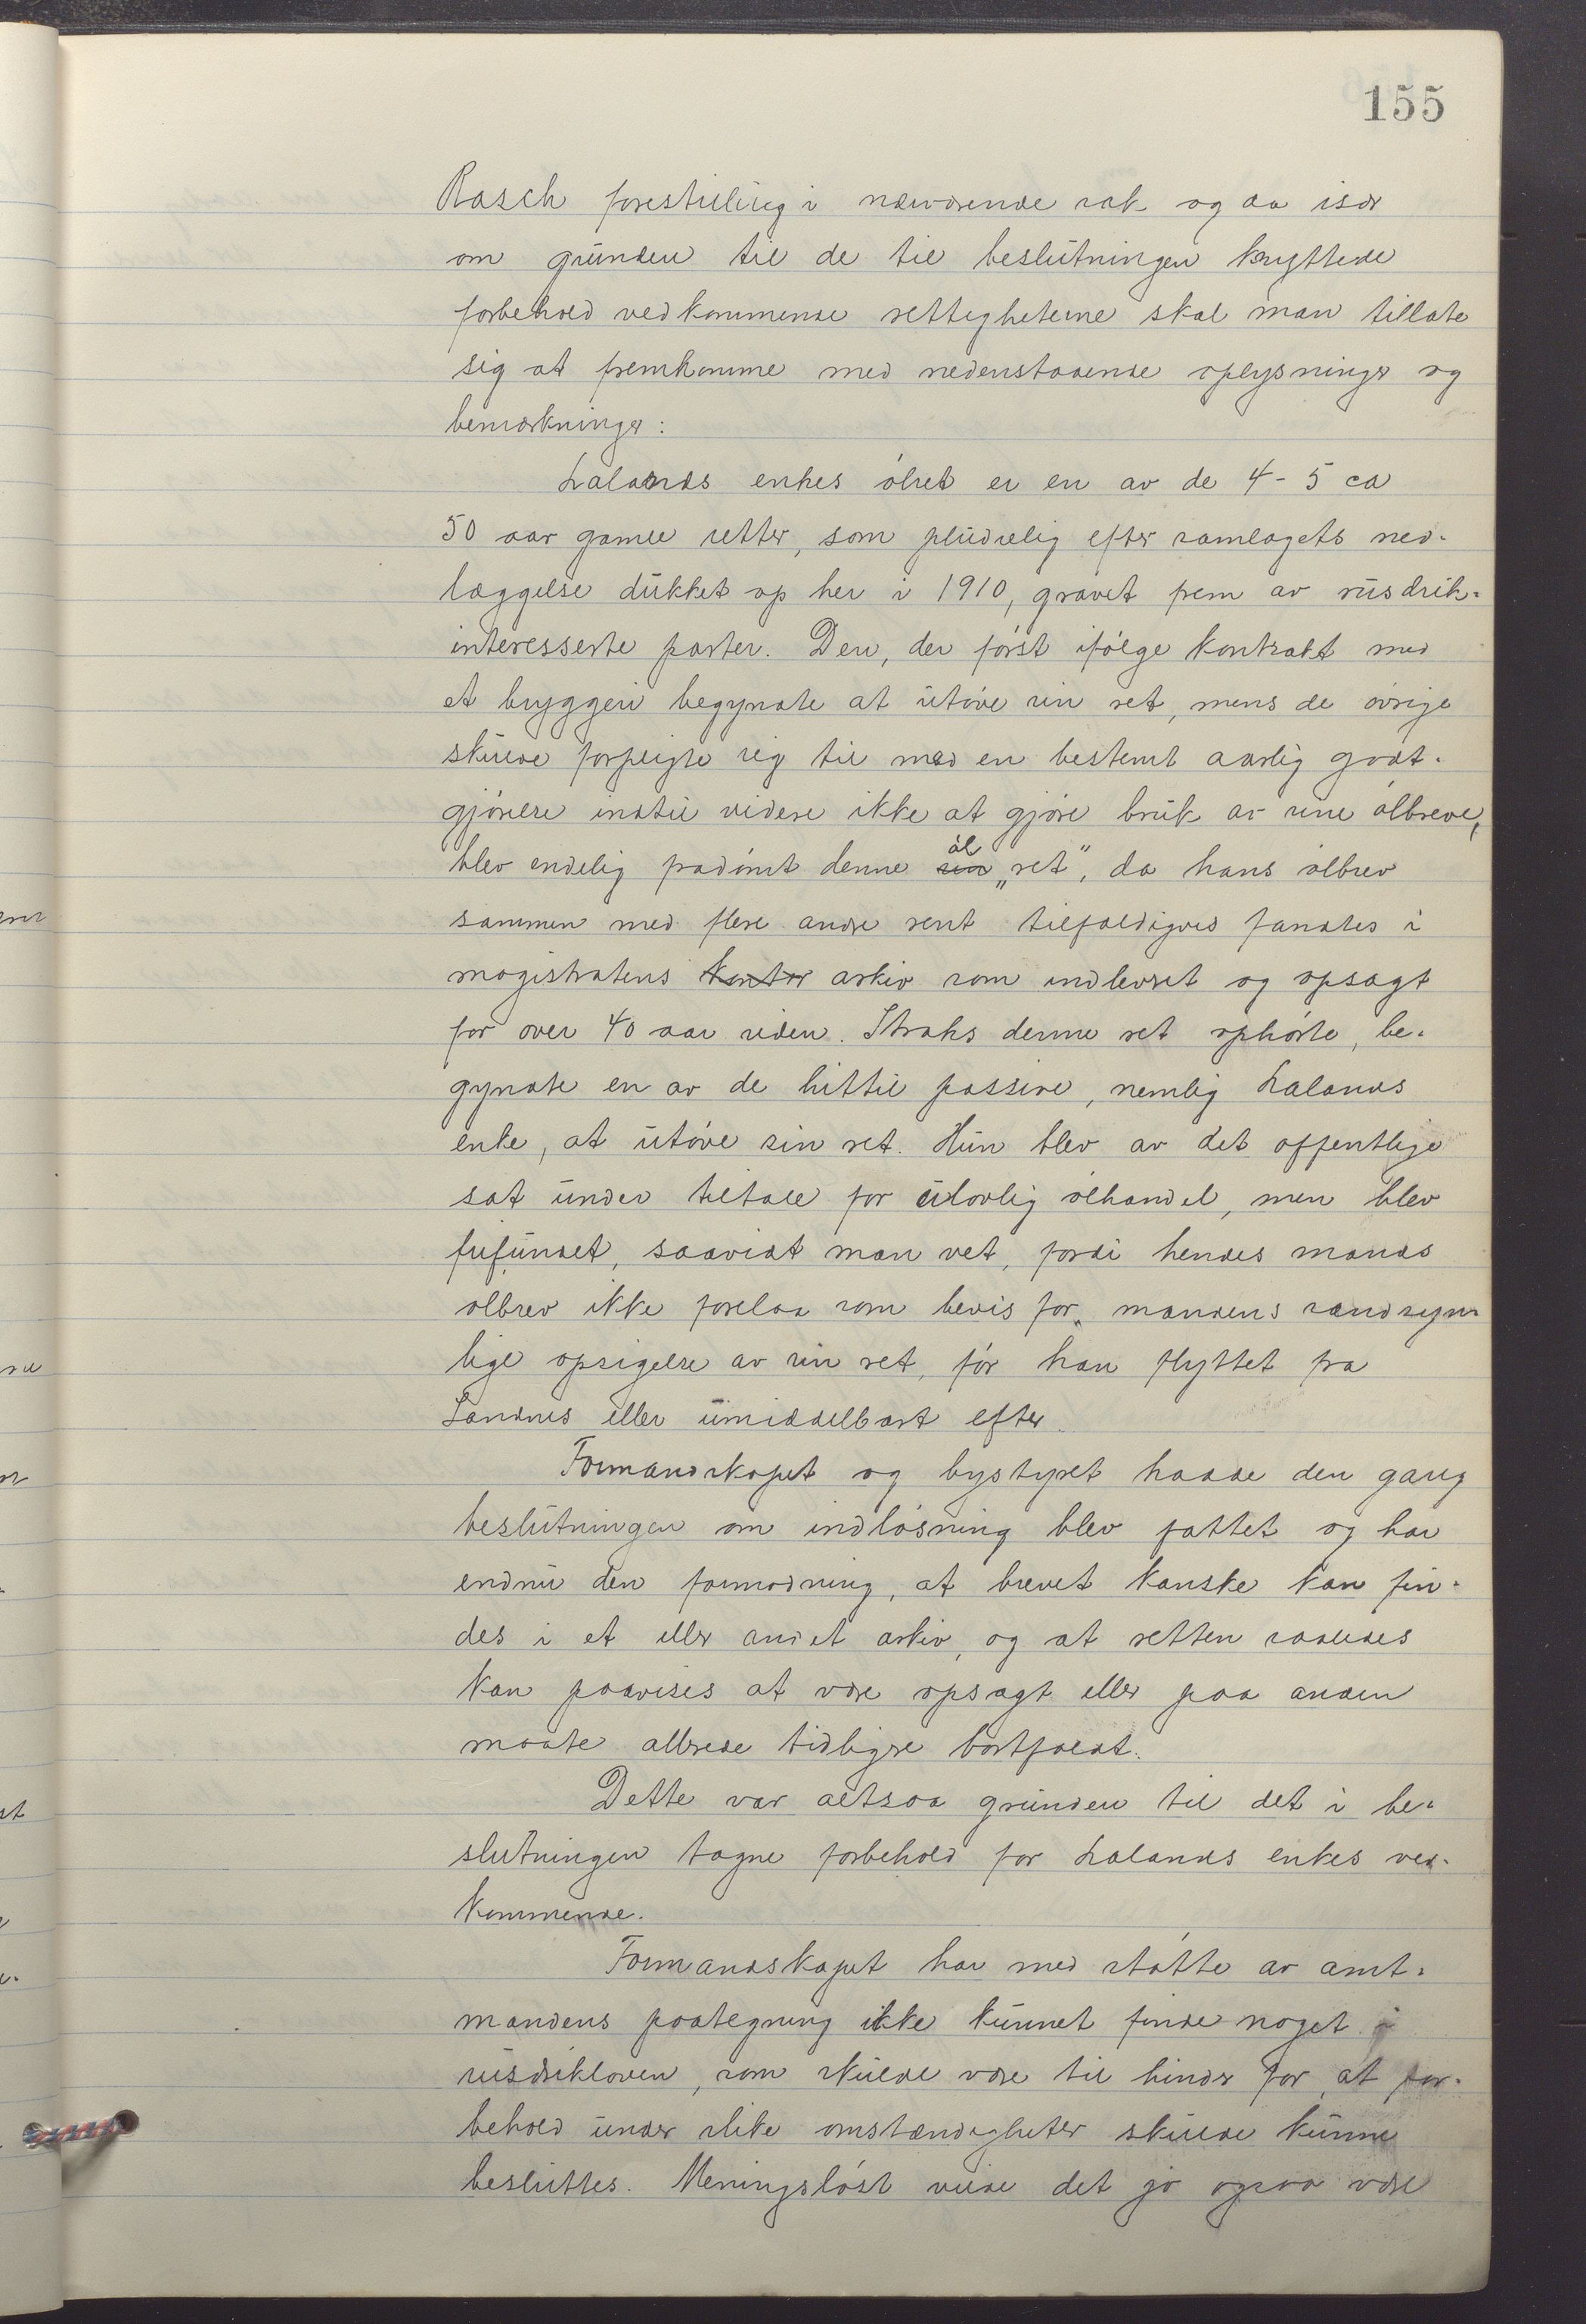 155
Rasch forestilling i nærværende sak og da især
om grunden til de til beslutningen knyttede
forbehold vedkommende rettigheterne skal man tillate
sig at fremkomme med nedenstaaende oplysninger og
bemærkninger:
Lalands enkes ølret er en av de 4-5 ca
50 aar gamle retter, som pludselig efter samlagets ned-
læggelse dukket op her i 1910, gravet frem av rusdrik-
interesserte parter. Den, der først ifølge kontrakt med
et bryggeri begyndte at utøve sin ret, mens de øvrige
skulde forpligte sig til mod en bestemt aarlig godt-
gjørelse indtil videre ikke at gjøre bruk av sine ølbreve,
blev endelig fradømt denne sin øl „ret", da hans ølbrev
sammen med flere andre rent tilfældigvis fandtes i
magistratens kontor arkiv som indleveret og opsagt
for over 40 aar siden. Straks denne ret ophørte, be-
gyndte en av de hittil passive, nemlig Lalands
enke, at utøve sin ret. Hun blev av det offentlige
sat under tiltale for ulovlig ølhandel, men blev
frifundet, saavidt man vet, fordi hendes mands
ølbrev ikke forelaa som bevis for mandens sandsyn-
lige opsigelse av sin ret, før han flyttet fra
Sandnes eller umiddelbart efter.
Formandskapet og bystyret hadde den gang
beslutningen om indløsning blev fattet og har
endnu den formodning, at brevet kanske kan fin-
des i et eller andet arkiv, og at retten saaledes
kan paavises at være opsagt eller paa anden
maate allerede tidligere bortfaldt.
Dette var altsaa grunden til det i be-
slutningen tagne forbehold for Lalands enkes ved-
kommende.
Formandskapet har med støtte av amt-
mandens paategning ikke kunnet finde noget i
rusdrikloven, som skulde være til hinder for, at for-
behold under slike omstændigheter skulde kunne
besluttes. Meningsløst vilde det jo ogsaa være